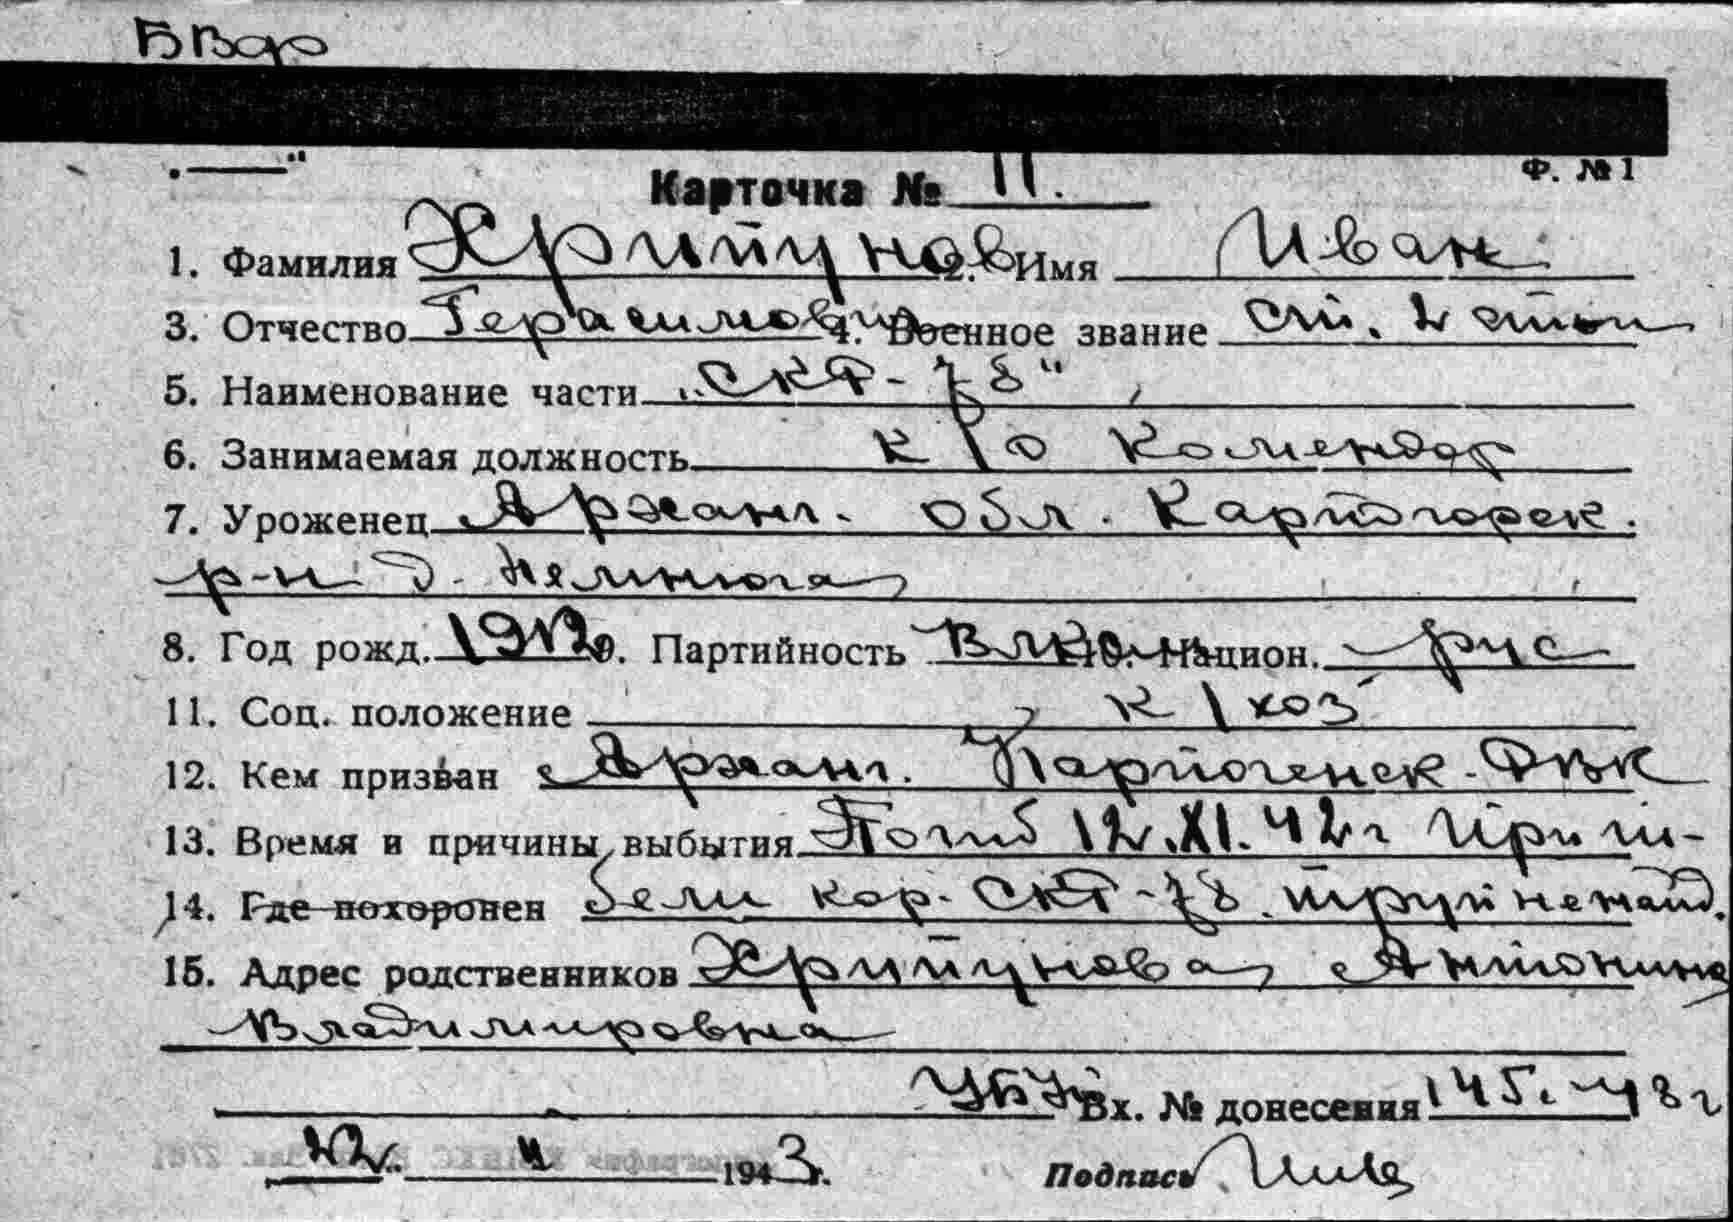 БВф
Ф. №1
Карточка № 11.
1. Фамилия Хрипунов 2. Имя Иван
3. Отчество Герасимович 4. Военное звание ст. 2 стат
5. Наименование части „СКР-78"
6. Занимаемая должность к/о комендор
7. Уроженец Арханг. обл. Карпогорск.
р-н д. Немнюга
8. Год рожд. 1912 9. Партийность ВЛКСМ 10. Национ. рус
11. Соц. положение к/хоз
12. Кем призван Арханг. Карпогенск. РВК
13. Время и причины выбытия Погиб 12.XI.42г при ги-
14. Где похоронен бели кор. СКР-78. труп не найд.
15. Адрес родственников Хрипунова Антонина
Владимировна
Вх. № донесения 145. 43г
22. 4 1943г.
Подпись